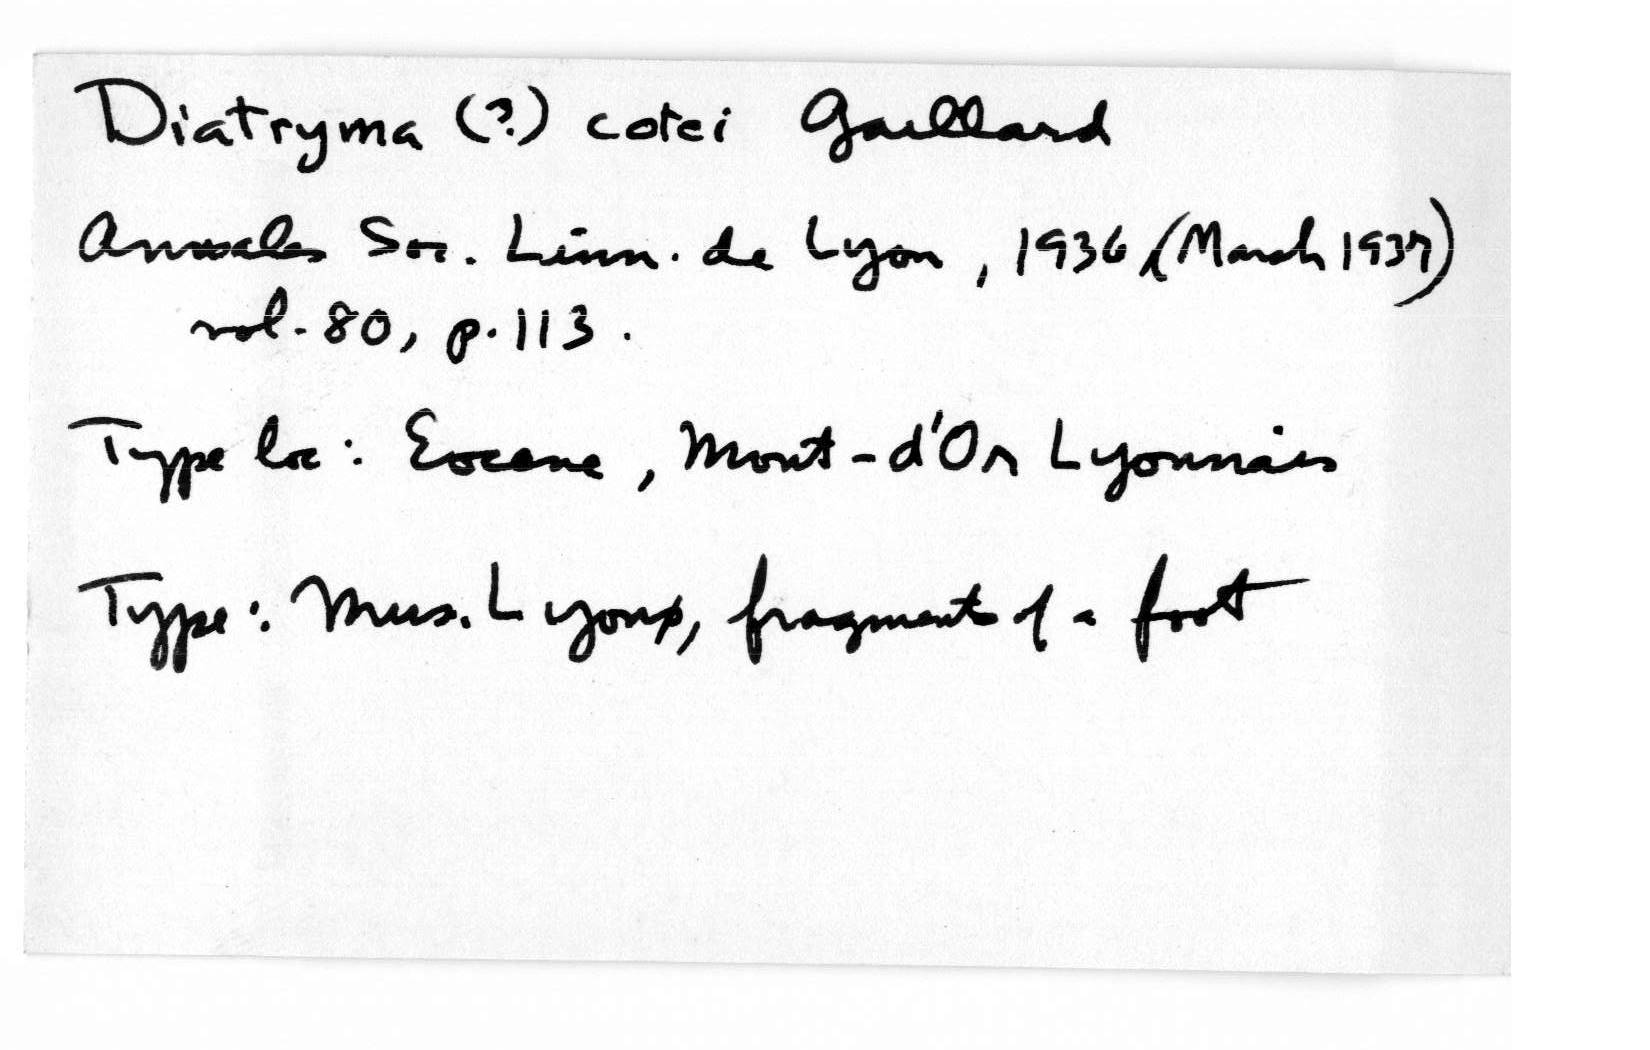 Diatryma (?) cotei Gaillard
Annales Soc. Linn. de Lyon, 1936 (March 1937)
vol. 80, p. 113.
Type loc: Eocene, Mont-d'Or Lyonnais
Type: Mus. Lyon, fragments of a foot